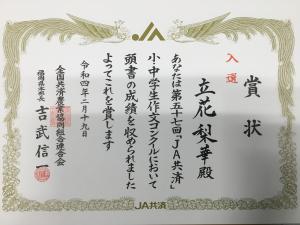 JA
賞状
入選
立花梨華殿
あなたは第五十七回「JA共済」
小・中学生作文コンクールにおいて
頭書の成績を収められました
よってこれを賞します
令和四年二月十九日
全国共済農業協同組合連合会
福岡県本部長 吉武信一
JA共済